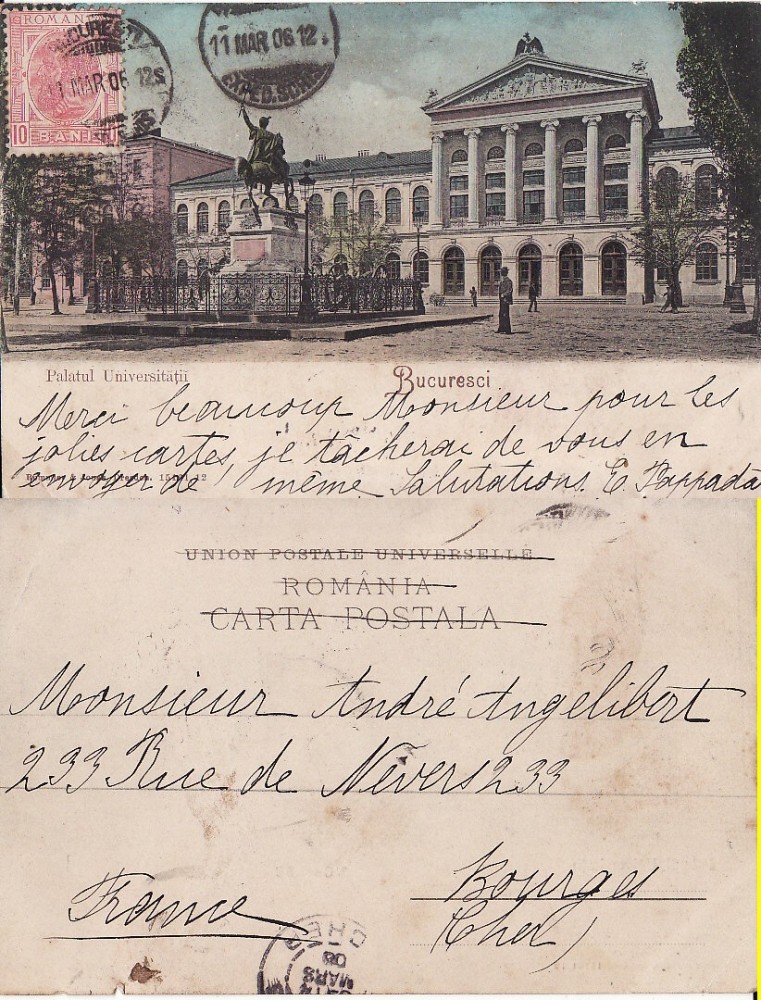 ROMANIA
10 BANI
BUCURESTI
11 MAR 06 12S
11 MAR 06 12
EXPED. SCRIS
Palatul Universității
Bucuresci
Merci beaucoup Monsieur pour les
jolies cartes, je tâcherai de vous en
envoyer de même Salutations E. Pappadà
12
UNION POSTALE UNIVERSELLE
ROMÂNIA
CARTA POSTALA
Monsieur André Angelibert
233 Rue de Nevers 233
Bourges
France
(Cher)
CHER
MARS
06